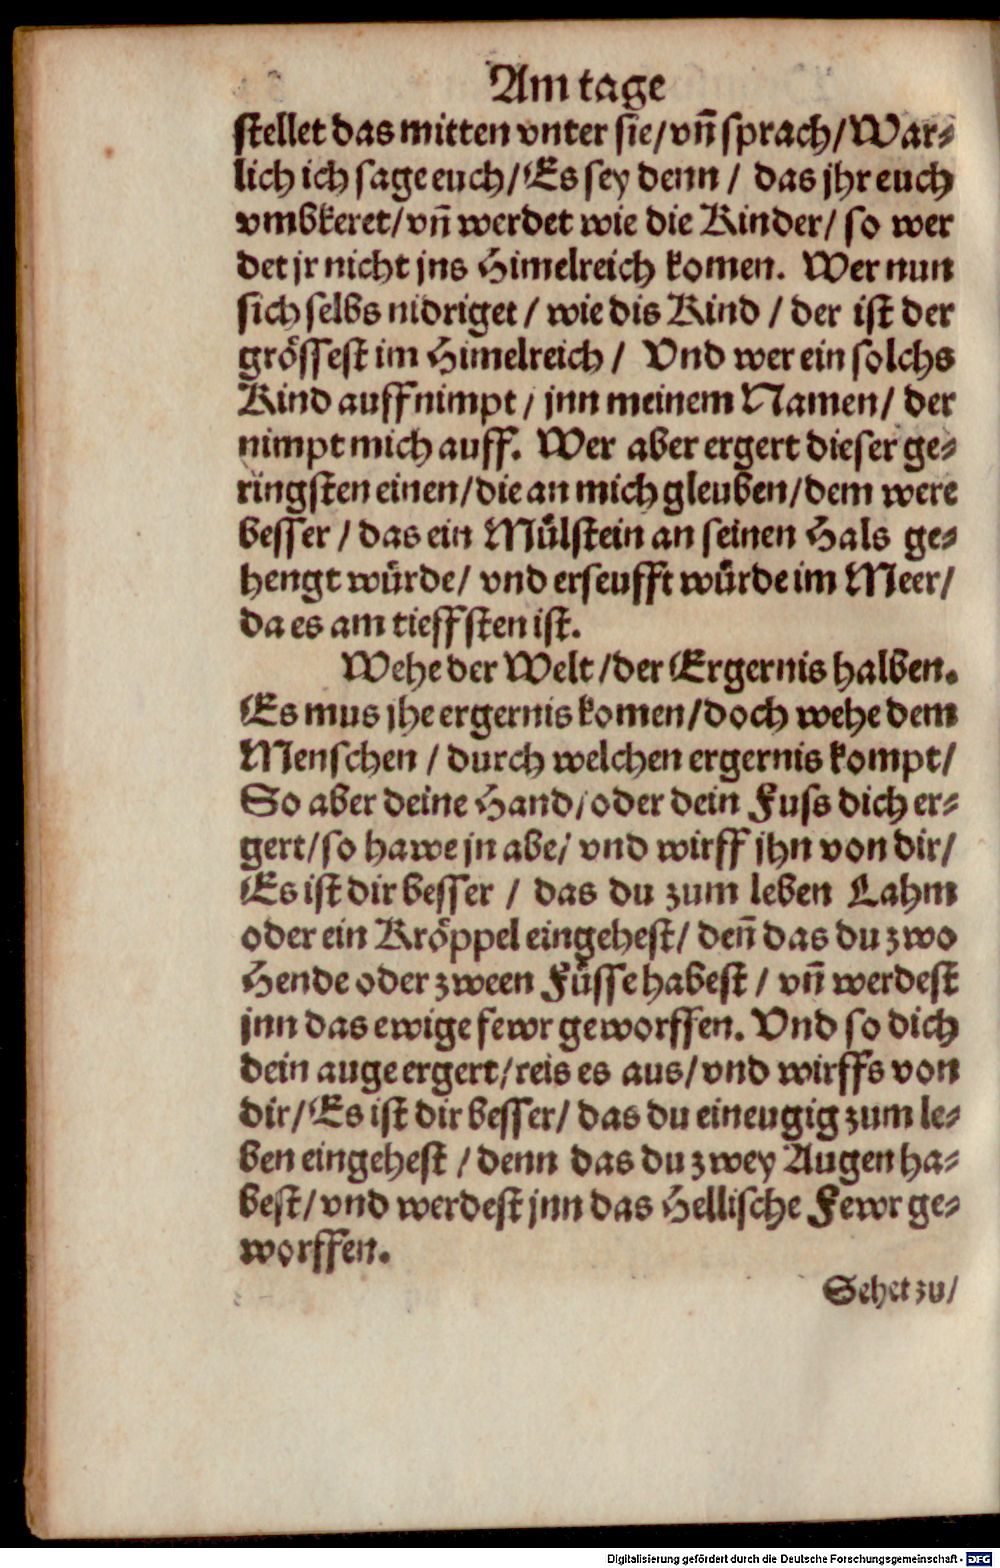 Am tage
stellet das mitten vnter sie/ vñ sprach/ War⸗
lich ich sage euch/ Es sey denn / das jhr euch
vmbkeret/ vñ werdet wie die Kinder/ so wer
det jr nicht jns Himelreich komen. Wer nun
sich selbs nidriget / wie dis Kind / der ist der
grössest im Himelreich / Vnd wer ein solchs
Kind auffnimpt / jnn meinem Namen/ der
nimpt mich auff. Wer aber ergert dieser ge⸗
ringsten einen/ die an mich gleuben/ dem were
besser / das ein Mülstein an seinen Hals ge⸗
hengt würde/ vnd erseufft würde im Meer/
da es am tieffsten ist.
Wehe der Welt / der Ergernis halben.
Es mus jhe ergernis komen/ doch wehe dem
Menschen / durch welchen ergernis kompt/
So aber deine Hand/ oder dein Fuss dich er⸗
gert/ so hawe jn abe/ vnd wirff jhn von dir/
Es ist dir besser / das du zum leben Lahm
oder ein Kröppel eingehest/ deñ das du zwo
Hende oder zween Füsse habest / vñ werdest
jnn das ewige fewr geworffen. Vnd so dich
dein auge ergert/ reis es aus/ vnd wirffs von
dir/ Es ist dir besser/ das du eineugig zum le⸗
ben eingehest / denn das du zwey Augen ha⸗
best/ vnd werdest jnn das Hellische Fewr ge⸗
worffen.
Sehet zu/
Digitalisierung gefördert durch die Deutsche Forschungsgemeinschaft - DFG